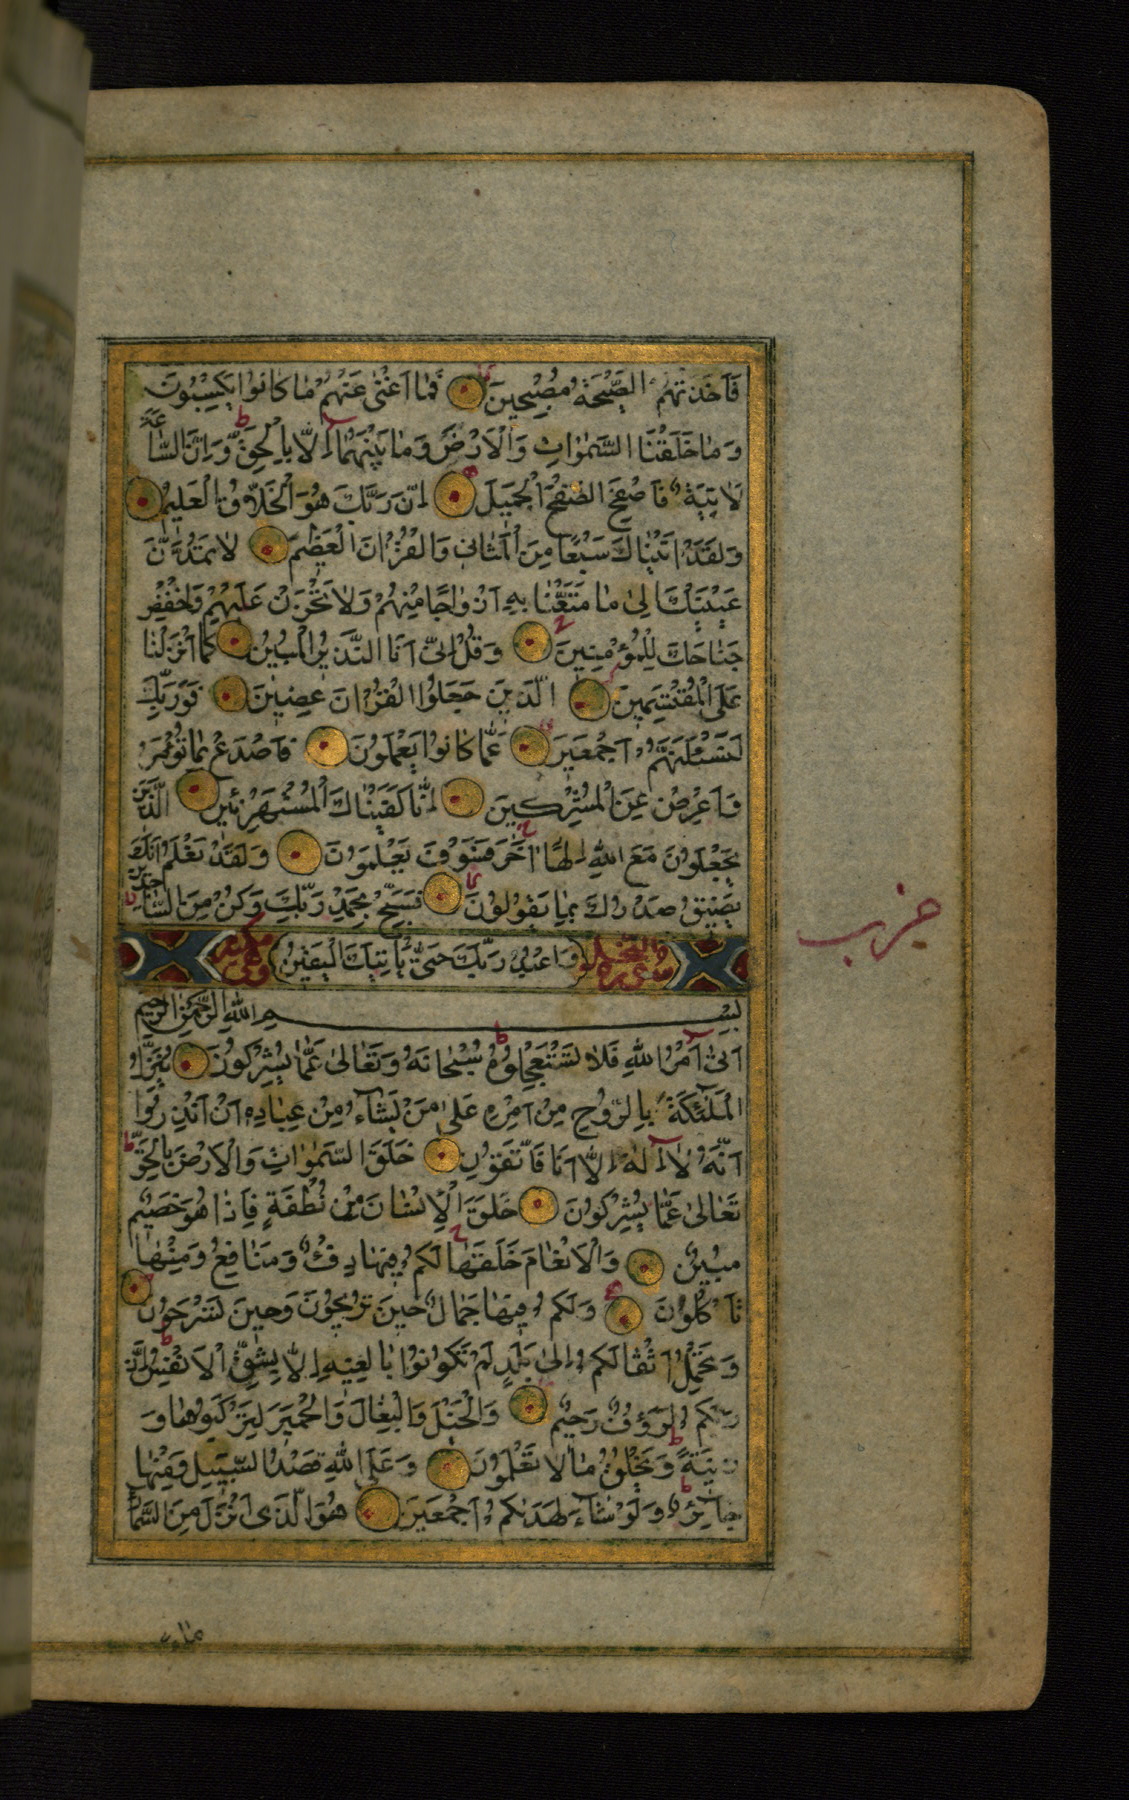 فَأَخَذَتْهُمُ الصَّيْحَةُ مُصْبِحِينَ فَمَا أَغْنَىٰ عَنْهُمْ مَا كَانُوا يَكْسِبُونَ
وَمَا خَلَقْنَا السَّمٰوَاتِ وَالْاَرْضَ وَمَا بَيْنَهُمَا اِلَّا بِالْحَقِّ وَاِنَّ السَّاعَةَ
لَاٰتِيَةٌ فَاصْفَحِ الصَّفْحَ الْجَمِيلَ اِنَّ رَبَّكَ هُوَ الْخَلَّاقُ الْعَلِيمُ
وَلَقَدْ اٰتَيْنَاكَ سَبْعًا مِنَ الْمَثَانِي وَالْقُرْاٰنَ الْعَظِيمَ لَا تَمُدَّنَّ
عَيْنَيْكَ اِلىٰ مَا مَتَّعْنَا بِهِ اَزْوَاجًا مِنْهُمْ وَلَا تَحْزَنْ عَلَيْهِمْ وَاخْفِضْ
جَنَاحَكَ لِلْمُؤْمِنِينَ وَقُلْ اِنِّي اَنَا النَّذِيرُ الْمُبِينُ كَمَا اَنْزَلْنَا
عَلَى الْمُقْتَسِمِينَ الَّذِينَ جَعَلُوا الْقُرْاٰنَ عِضِينَ فَوَرَبِّكَ
لَنَسْئَلَنَّهُمْ اَجْمَعِينَ عَمَّا كَانُوا يَعْمَلُونَ فَاصْدَعْ بِمَا تُؤْمَرُ
وَاَعْرِضْ عَنِ الْمُشْرِكِينَ اِنَّا كَفَيْنَاكَ الْمُسْتَهْزِئِينَ الَّذِينَ
يَجْعَلُونَ مَعَ اللّٰهِ اِلٰهًا اٰخَرَ فَسَوْفَ يَعْلَمُونَ وَلَقَدْ نَعْلَمُ اَنَّكَ
يَضِيقُ صَدْرُكَ بِمَا يَقُولُونَ فَسَبِّحْ بِحَمْدِ رَبِّكَ وَكُنْ مِنَ السَّاجِدِينَ
سُورَة النَّحْل وَاعْبُدْ رَبَّكَ حَتّٰى يَاْتِيَكَ الْيَقِينُ
حزب
بِسْمِ اللّٰهِ الرَّحْمٰنِ الرَّحِيمِ
اَتىٰ اَمْرُ اللّٰهِ فَلَا تَسْتَعْجِلُوهُ سُبْحَانَهُ وَتَعَالىٰ عَمَّا يُشْرِكُونَ يُنَزِّلُ
الْمَلٰٓئِكَةَ بِالرُّوحِ مِنْ اَمْرِهِ عَلىٰ مَنْ يَشَاءُ مِنْ عِبَادِهِ اَنْ اَنْذِرُوا
اَنَّهُ لَا اِلٰهَ اِلَّا اَنَا فَاتَّقُونِ خَلَقَ السَّمٰوَاتِ وَالْاَرْضَ بِالْحَقِّ
تَعَالىٰ عَمَّا يُشْرِكُونَ خَلَقَ الْاِنْسَانَ مِنْ نُطْفَةٍ فَاِذَا هُوَ خَصِيمٌ
مُبِينٌ وَالْاَنْعَامَ خَلَقَهَا لَكُمْ فِيهَا دِفْءٌ وَمَنَافِعُ وَمِنْهَا
تَاْكُلُونَ وَلَكُمْ فِيهَا جَمَالٌ حِينَ تُرِيحُونَ وَحِينَ تَسْرَحُونَ
وَتَحْمِلُ اَثْقَالَكُمْ اِلىٰ بَلَدٍ لَمْ تَكُونُوا بَالِغِيهِ اِلَّا بِشِقِّ الْاَنْفُسِ اِنَّ
رَبَّكُمْ لَرَؤُفٌ رَحِيمٌ وَالْخَيْلَ وَالْبِغَالَ وَالْحَمِيرَ لِتَرْكَبُوهَا وَ
زِينَةً وَيَخْلُقُ مَا لَا تَعْلَمُونَ وَعَلَى اللّٰهِ قَصْدُ السَّبِيلِ وَمِنْهَا
جَائِرٌ وَلَوْ شَاءَ لَهَدٰىكُمْ اَجْمَعِينَ هُوَ الَّذِى اَنْزَلَ مِنَ السَّمَاءِ